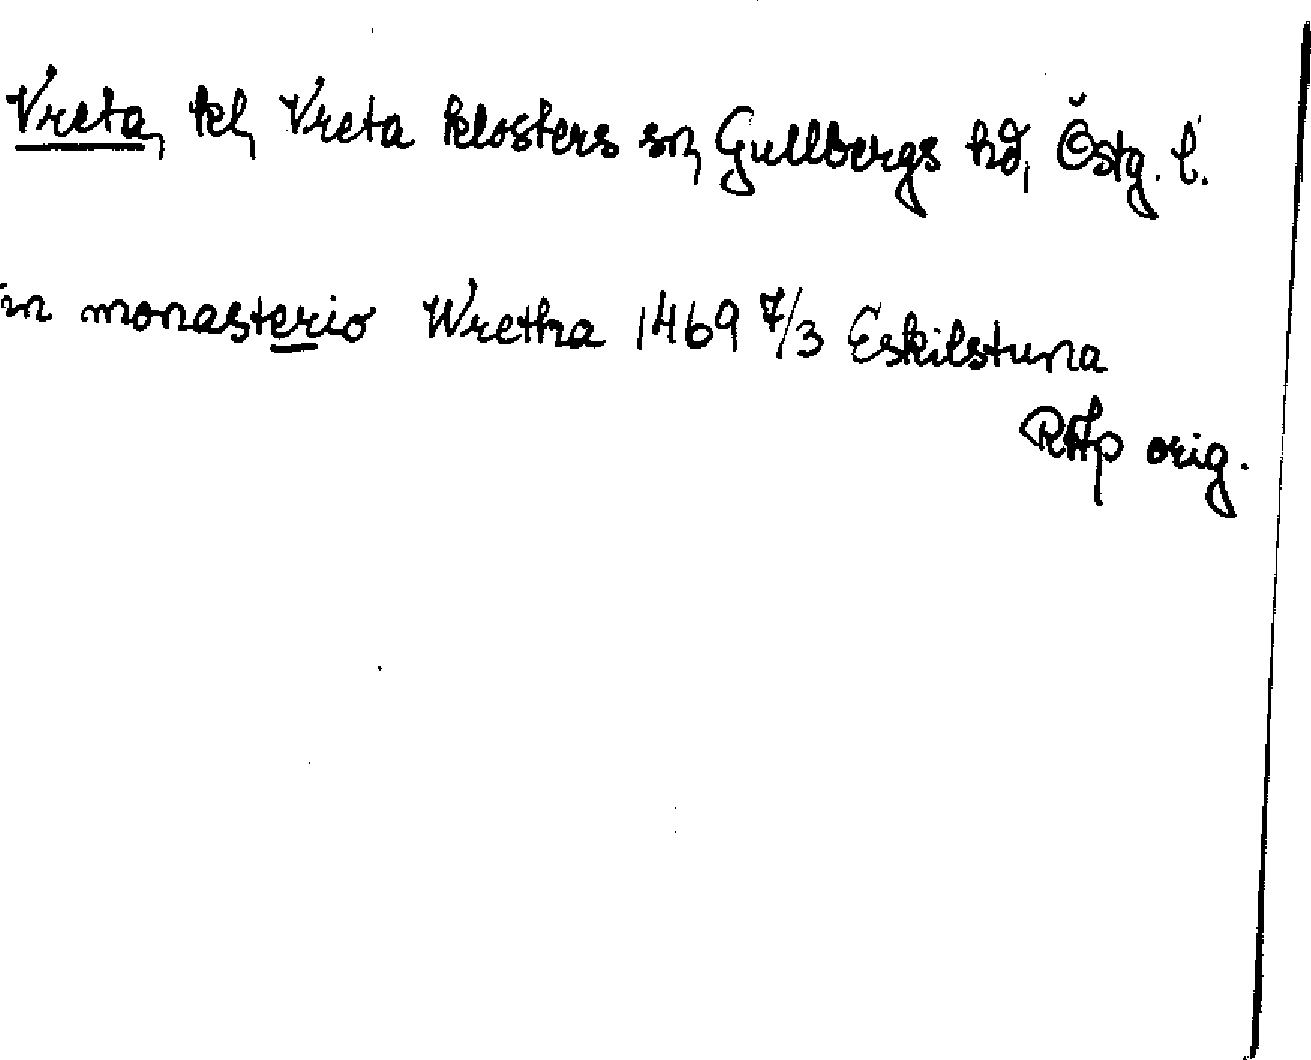 Vreta, kl, Vreta klosters sn, Gullbergs hd, Östg. l.
in monasterio Wretha 1469 7/3 Eskilstuna
RAp orig.